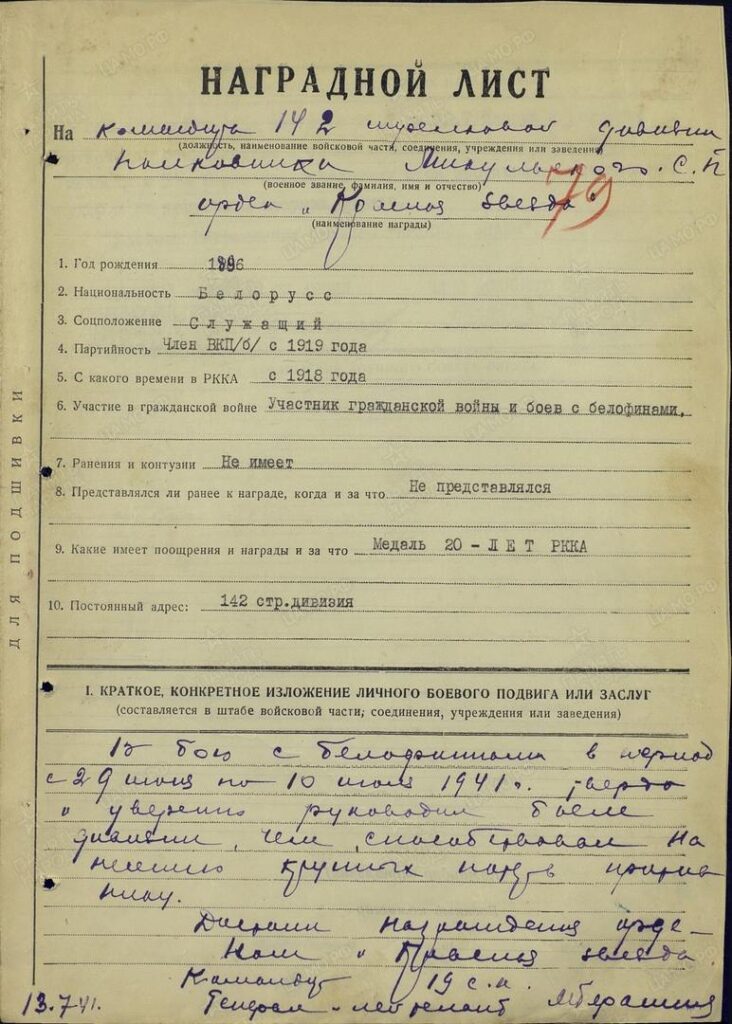 НАГРАДНОЙ ЛИСТ
На командира 142 стрелковой дивизии
(должность, наименование войсковой части, соединения, учреждения или заведения)
полковника Микульского С.П
(военное звание, фамилия, имя и отчество)
79
орден "Красная звезда"
(наименование награды)
1. Год рождения 1896
2. Национальность Белорусс
3. Соцположение Служащий
4. Партийность Член ВКП/б/ с 1919 года
5. С какого времени в РККА с 1918 года
6. Участие в гражданской войне Участник гражданской войны и боев с белофинами.
7. Ранения и контузии Не имеет
8. Представлялся ли ранее к награде, когда и за что Не представлялся
9. Какие имеет поощрения и награды и за что Медаль 20 - ЛЕТ РККА
10. Постоянный адрес: 142 стр.дивизия
ДЛЯ ПОДШИВКИ
I. КРАТКОЕ, КОНКРЕТНОЕ ИЗЛОЖЕНИЕ ЛИЧНОГО БОЕВОГО ПОДВИГА ИЛИ ЗАСЛУГ
(составляется в штабе войсковой части, соединения, учреждения или заведения)
В бою с белофиннами в период
с 29 июня по 10 июля 1941г. твердо
и уверенно руководил боем
дивизии, чем способствовал на
несению крупных противнику.
Достоин награждения орде-
ном "Красная звезда
Командир 19 с.к.
13.7.41. Генерал-лейтенант Герасимов